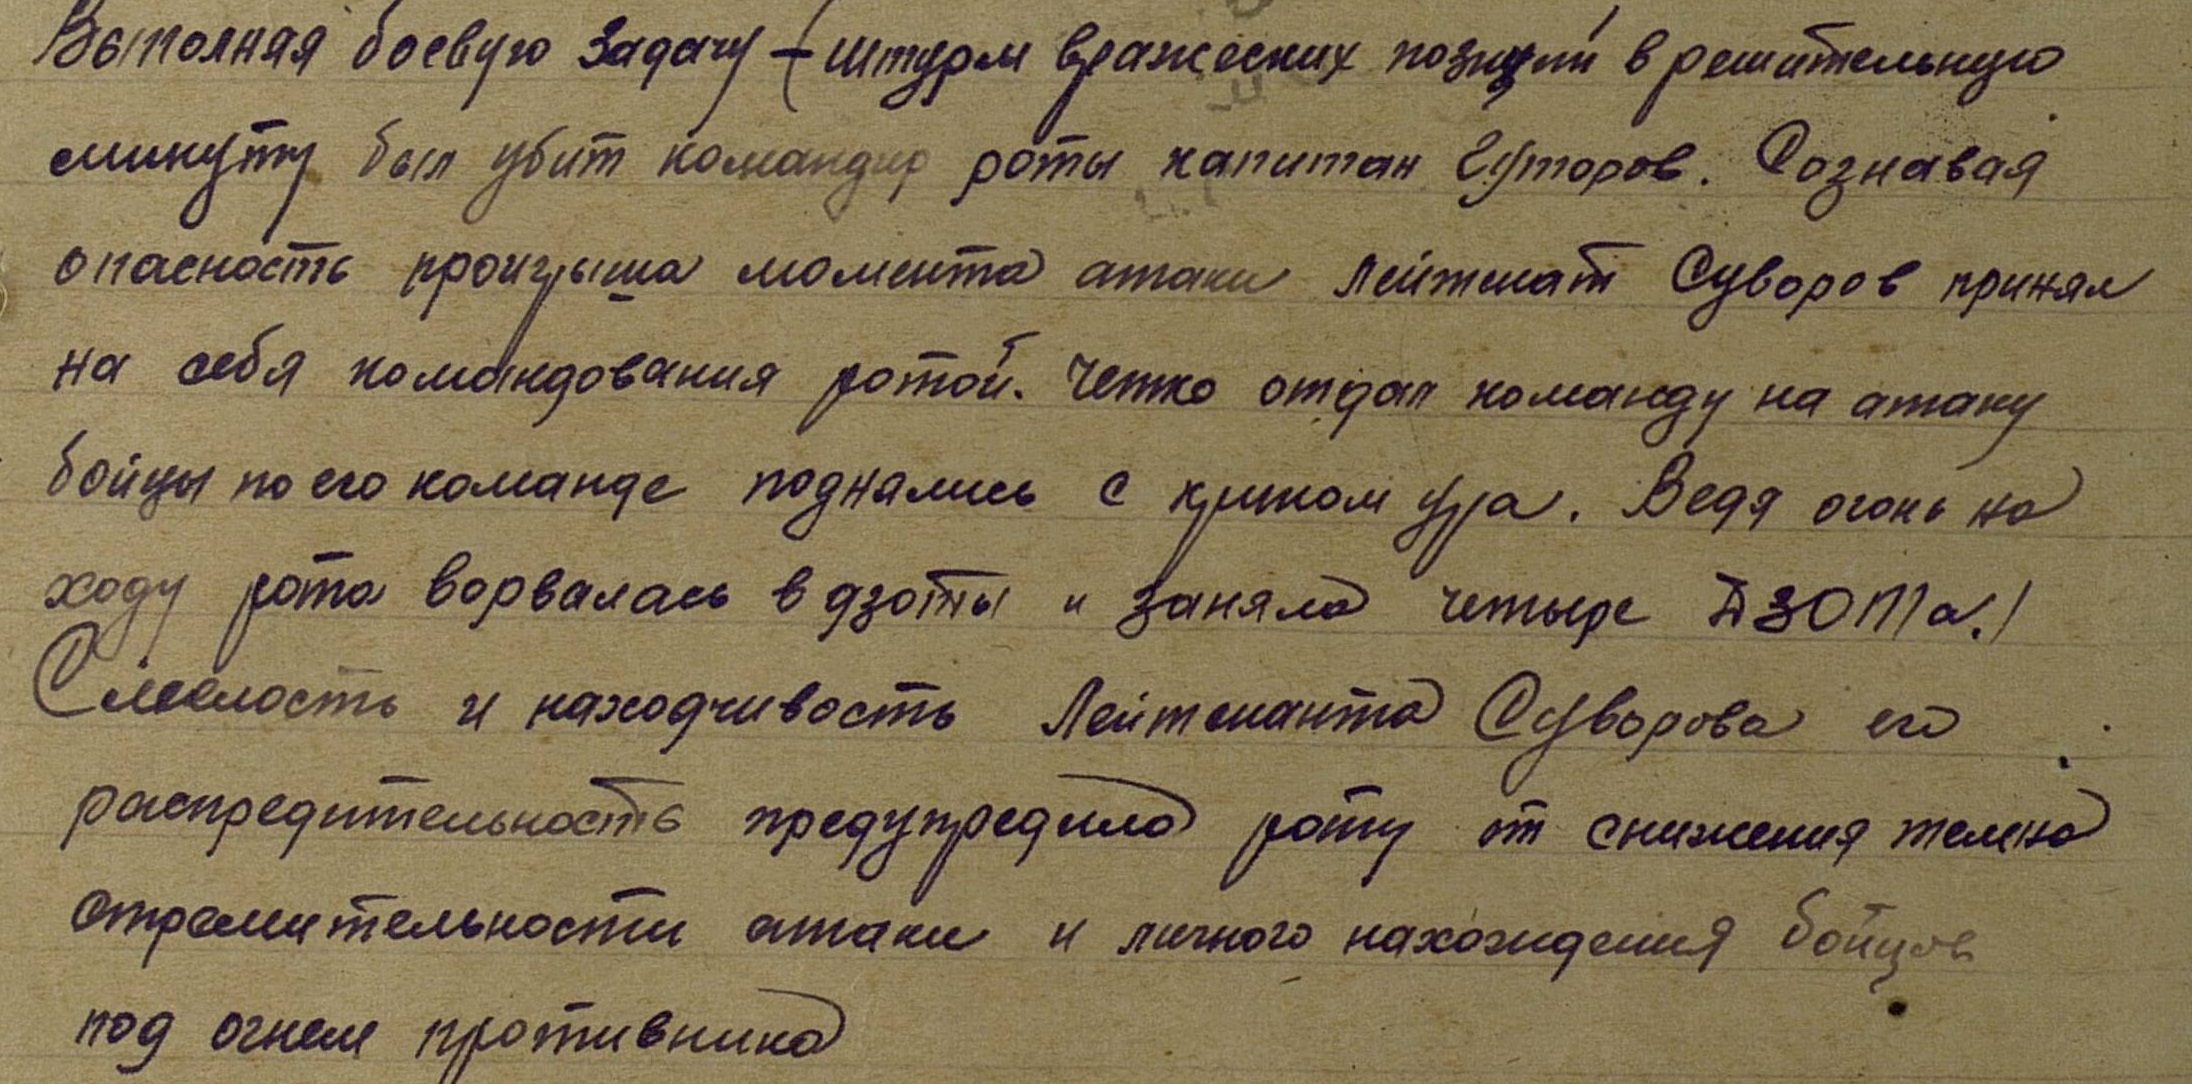 Выполняя боевую задачу – (штурм вражеских позиций в решительную
минуту был убит командир роты капитан Гуторов. Сознавая
опасность проигрыша момента атаки лейтенат Суворов принял
на себя командования ротой. Четко отдал команду на атаку
бойцы по его команде поднялись с криком ура. Ведя огонь на
ходу рота ворвалась в дзоты и заняла четыре ДЗОТа.!
Смелость и находчивость Лейтенанта Суворова его
распредительность предупредила роту от снижения темпа
стремительности атаки и личного нахождения бойцов
под огнем противника